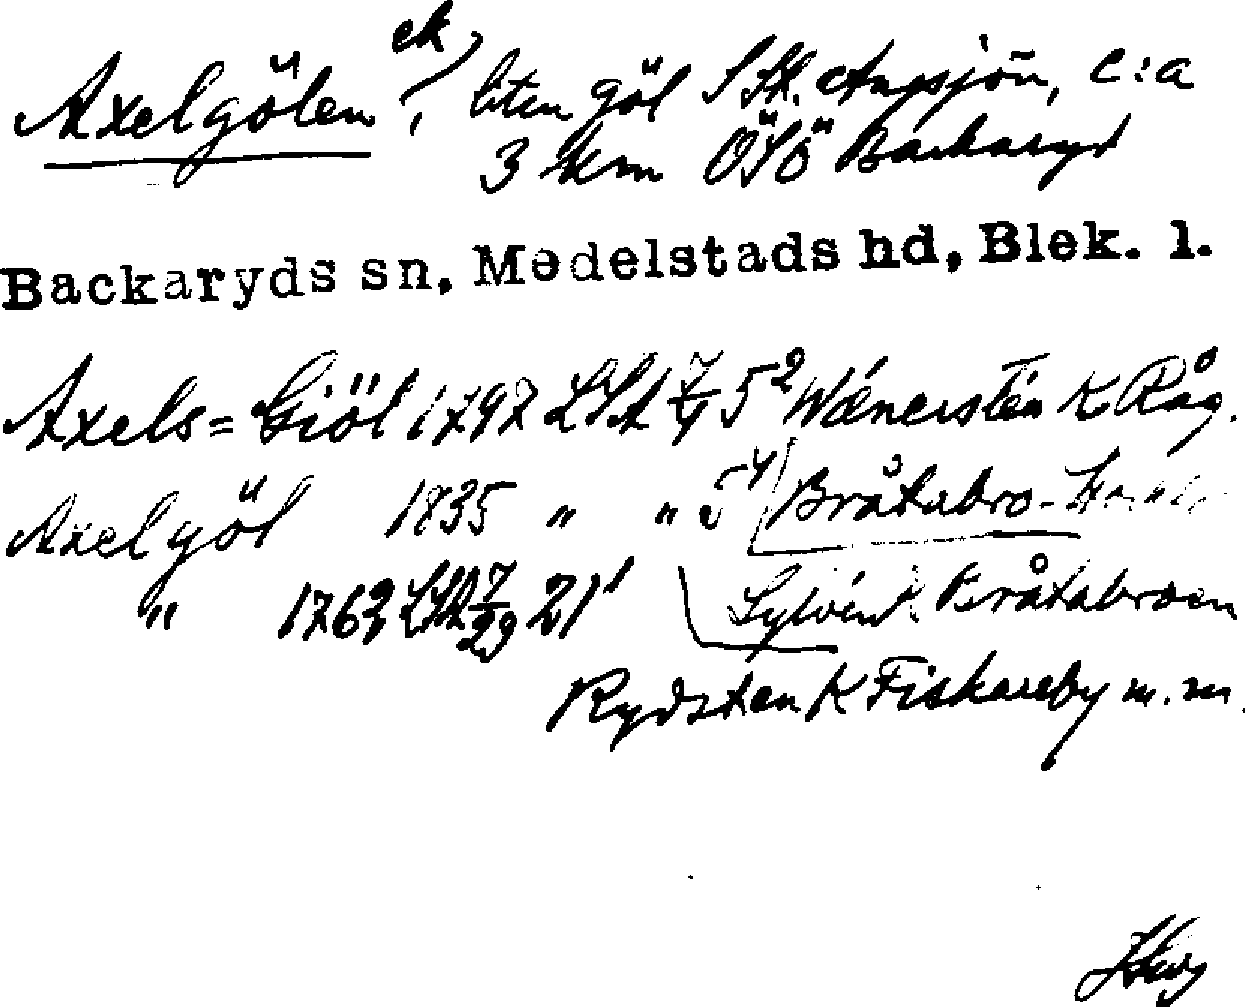 Axelgölen ek, liten göl S St. Angsjön, c:a
3 km ÖSÖ Backaryd
Backaryds sn, Medelstads hd, Blek. l.
Axels=Giöl 1797 LSA 7/4 5² Wänersten K Råg.
Axelgöl 1835 " " 5⁴ Bråtabro-
" 1763 LSA 7/29 21¹ Sylvén K Bråtabroen
Rydsten K Fiskareby m.m.